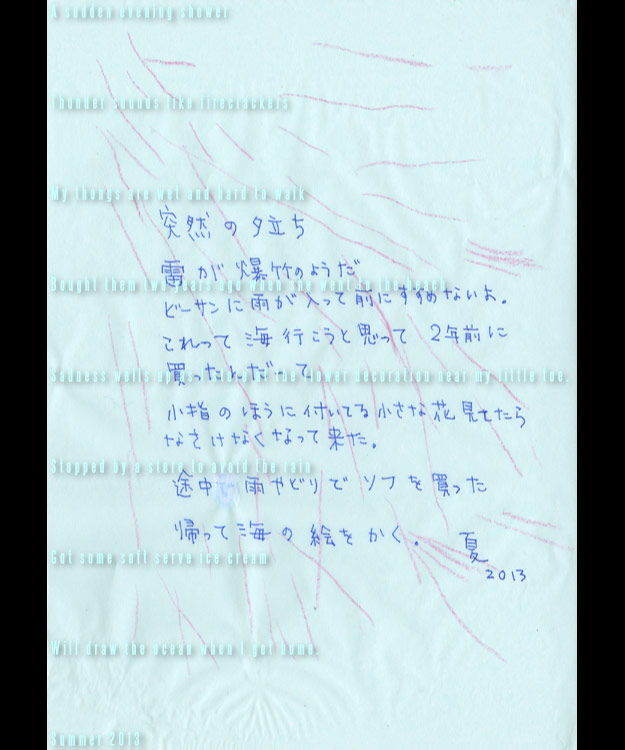 A sudden evening shower
Thunder sounds like firecrackers
My thongs are wet and hard to walk
突然の夕立ち
雷が爆竹のようだ
Bought them two years ago when she went to the beach
ビーサンに雨が入って前にすすめないよ。
これって海行こうと思って2年前に
買ったんだって
Sadness wells up as I look at the flower decoration near my little toe.
小指のほうに付いてる小さな花見てたら
なさけなくなって来た。
Stopped by a store to avoid the rain
途中で雨やどりでソフを買った
帰って海の絵をかく。夏
Got some soft serve ice cream
2013
Will draw the ocean when I get home.
Summer 2013